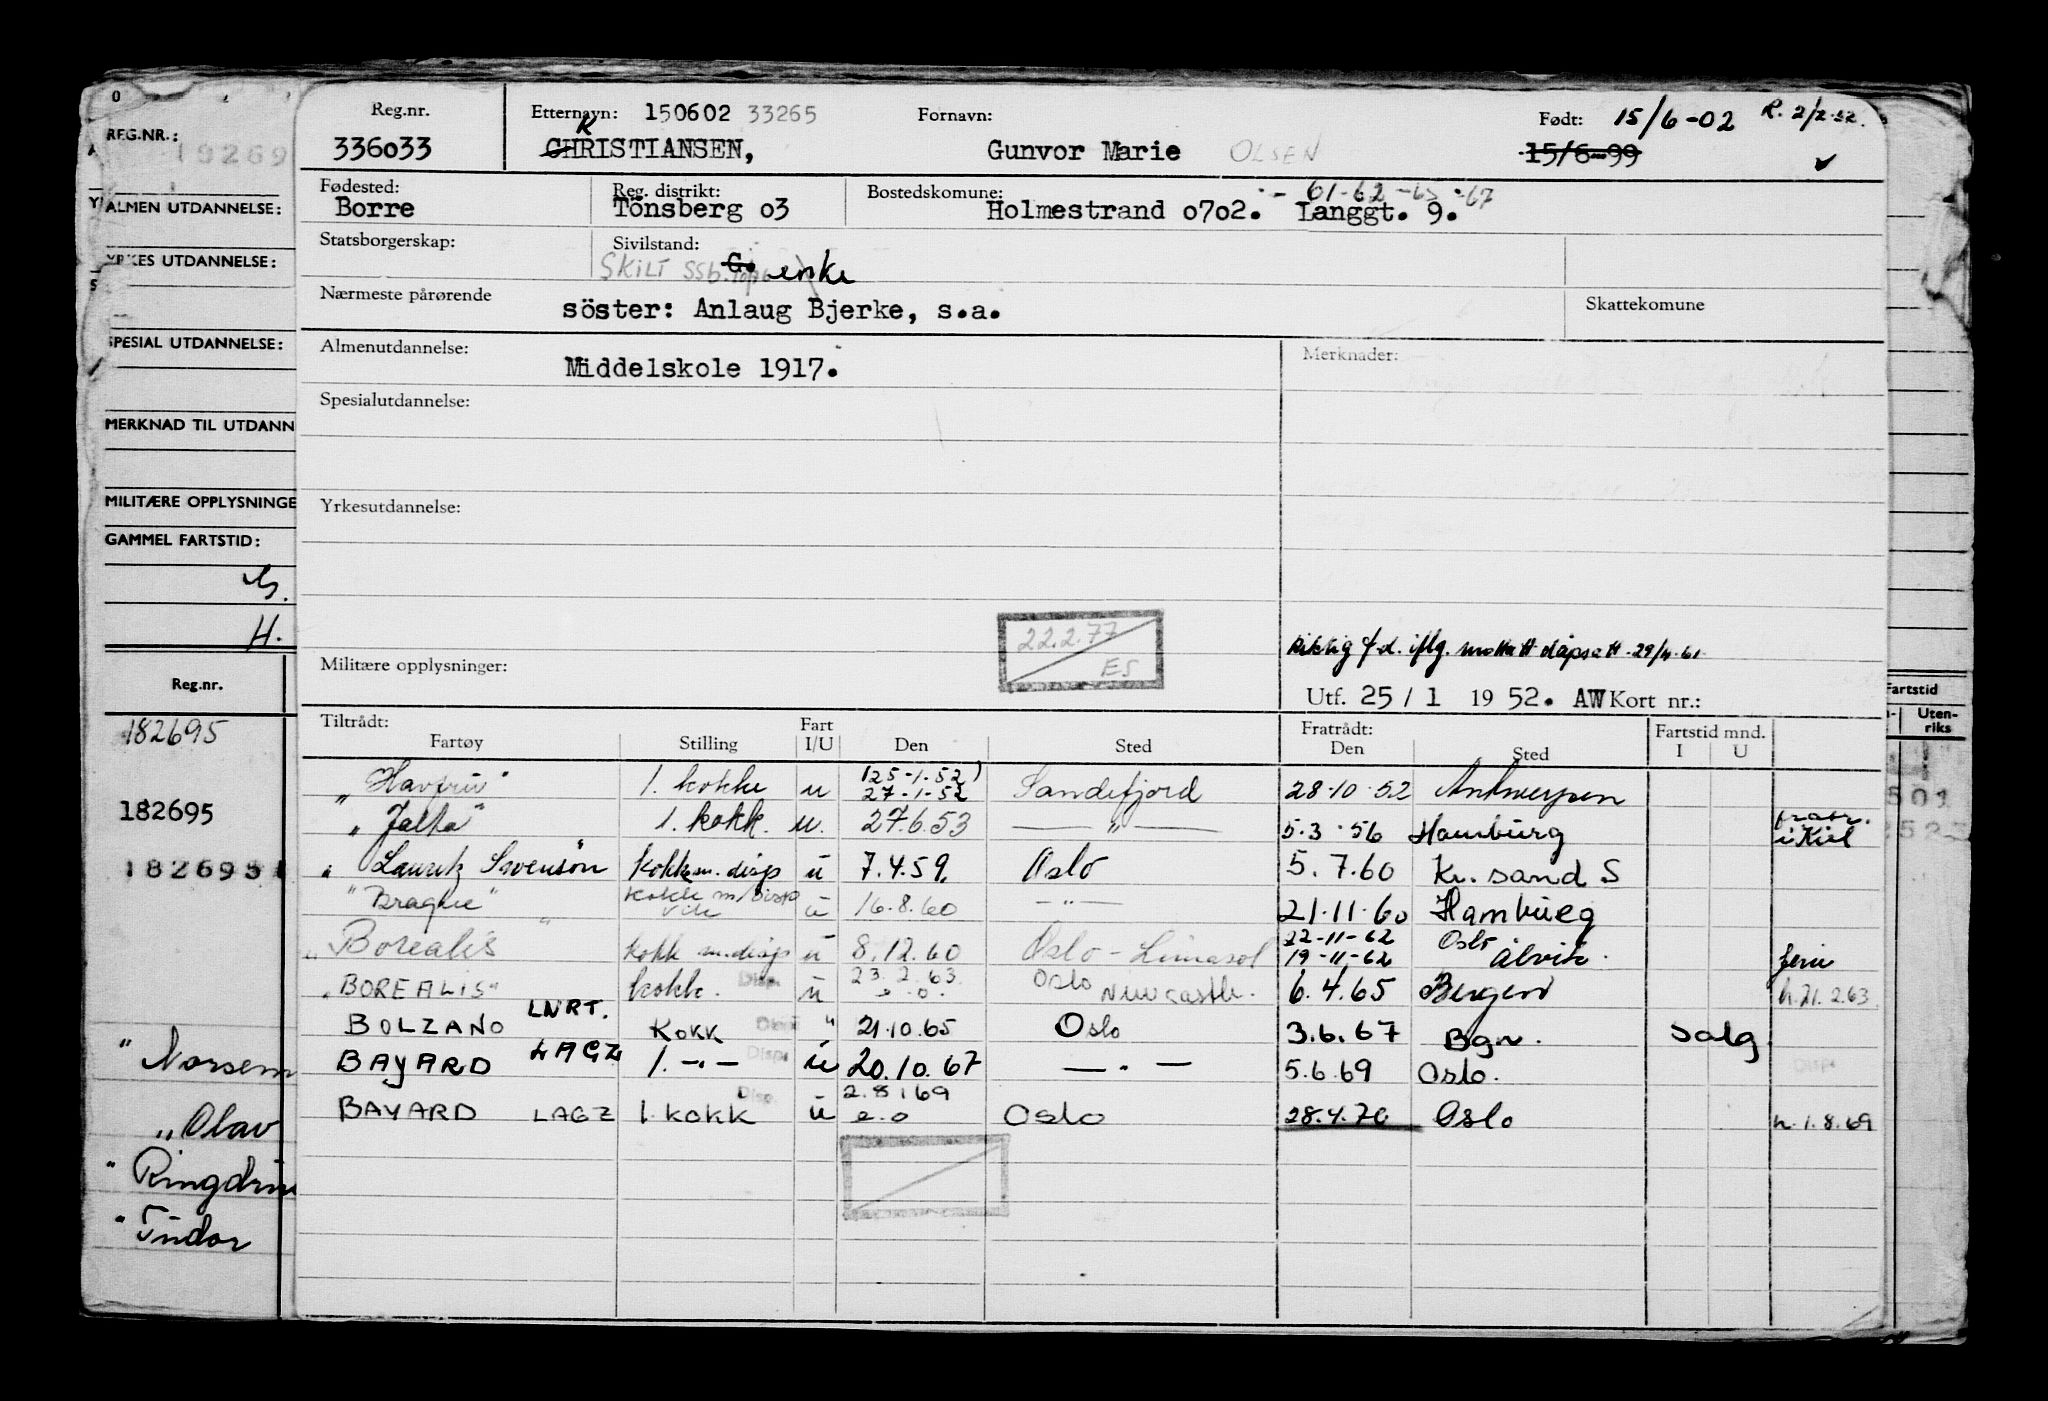 REG.NR.:
ALMEN UTDANNELSE:
YRKES UTDANNELSE:
SPESIAL UTDANNELSE:
MERKNAD TIL UTDANN
MILITÆRE OPPLYSNINGE
GAMMEL FARTSTID:
H.
Reg.nr.
182695
182695
182695
" Norsem
" Olav
" Ringdri
" Tudor
Reg.nr. Etternavn: 150602 33265 Fornavn: Født: 15/6-02 R. 2/2-52.
336033 CHRISTIANSEN, K Gunvor Marie OLSEN 15/6-99
Fødested: Reg. distrikt: Bostedskomune: - 61-62-65-67
Borre Tönsberg o3 Holmestrand o7o2. Langgt. 9.
Statsborgerskap: Sivilstand:
SKILT SSb. G. enke
Nærmeste pårørende söster: Anlaug Bjerke, s.a. Skattekomune
Almenutdannelse: Middelskole 1917. Merknader:
Spesialutdannelse:
Yrkesutdannelse:
22.2.77
ES
Riktig f.d. iflg. mottatt dåpsatt. 29/4-61
Militære opplysninger:
Utf. 25 / 1 1952. AW Kort nr.:
Tiltrådt: Fart Fratrådt: Fartstid mnd.
Fartøy Stilling I/U Den Sted Den Sted I U
"Havfru" 1. kokke u (25-1-52) 27-1-52 Sandefjord 28-10-52 Antwerpen
"Jalta" 1. kokk. u. 27.6.53 — " — 5.3.56 Hamburg fratr. i Kiel
" Lauritz Svenson kokk m. disp u 7.4.59. Oslo 5.7.60 Kr. sand S
"Braghe" kokk m/disp u 16.8.60 — " — 21.11.60 Hamburg
"Borealis" kokk m. disp u 8.12.60 Oslo - Limasol 22-11-62 19-11-62 Oslo Ålvik. ferie
"BOREALIS" kokk. Disp. u 23.2.63. Oslo Newcastle. 6.4.65 Bergen h. 21.2.63
BOLZANO LNRT. KOKK " 21.10.65 Oslo 3.6.67 Bgn. Salg
BAYARD LAGZ 1. -"- Disp. u 20.10.67 — " — 5.6.69 Oslo. Disp.
BAYARD LAGZ 1. KOKK Disp. u 2.8.69 e.o Oslo 28.4.70 Oslo h. 1.8.69
Fartstid
Uten-
riks